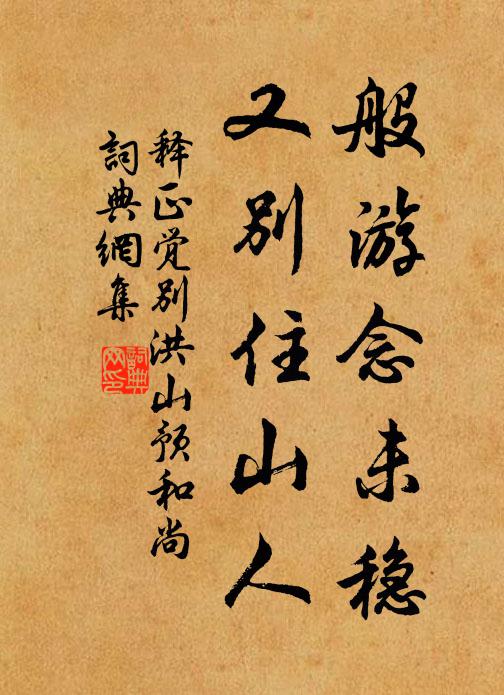 般游念未稳
又别住山人
释正觉别洪山预和尚
詞典網集
詞典
网印